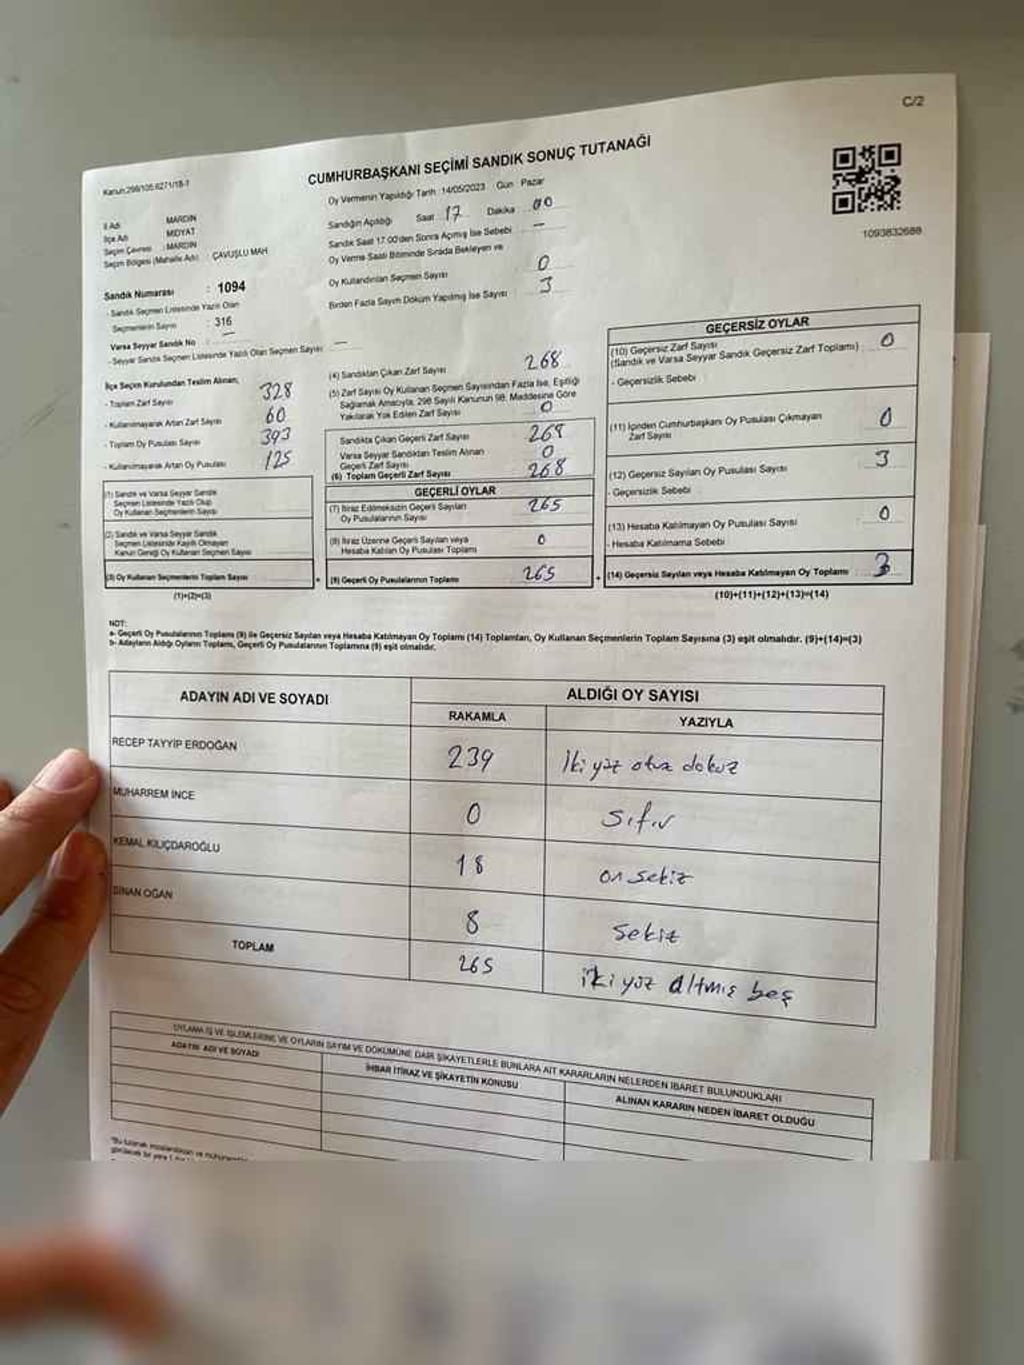 C/2
CUMHURBAŞKANI SEÇİMİ SANDIK SONUÇ TUTANAĞI
Kanun:298/105.6271/18-1
Oy Vermenin Yapıldığı Tarih :14/05/2023 Gün : Pazar
İl Adı : MARDİN
İlçe Adı : MİDYAT
Seçim Çevresi : MARDİN
Seçim Bölgesi (Mahalle Adı) : ÇAVUŞLU MAH
Sandığın Açıldığı Saat : 17 Dakika : 00
Sandık Saat 17:00'den Sonra Açılmış İse Sebebi : —
Oy Verme Saati Bitiminde Sırada Bekleyen ve
Oy Kullandırılan Seçmen Sayısı : 0
Birden Fazla Sayım Döküm Yapılmış İse Sayısı : 3
1093832688
Sandık Numarası : 1094
- Sandık Seçmen Listesinde Yazılı Olan
Seçmenlerin Sayısı : 316
Varsa Seyyar Sandık No : —
- Seyyar Sandık Seçmen Listesinde Yazılı Olan Seçmen Sayısı : —
İlçe Seçim Kurulundan Teslim Alınan;
- Toplam Zarf Sayısı : 328
- Kullanılmayarak Artan Zarf Sayısı : 60
- Toplam Oy Pusulası Sayısı : 393
- Kullanılmayarak Artan Oy Pusulası : 125
(1) Sandık ve Varsa Seyyar Sandık
Seçmen Listesinde Yazılı Olup
Oy Kullanan Seçmenlerin Sayısı
(2) Sandık ve Varsa Seyyar Sandık
Seçmen Listesinde Kayıtlı Olmayan
Kanun Gereği Oy Kullanan Seçmen Sayısı
(3) Oy Kullanan Seçmenlerin Toplam Sayısı
(1)+(2)=(3)
(4) Sandıktan Çıkan Zarf Sayısı : 268
(5) Zarf Sayısı Oy Kullanan Seçmen Sayısından Fazla İse, Eşitliği
Sağlamak Amacıyla, 298 Sayılı Kanunun 98. Maddesine Göre
Yakılarak Yok Edilen Zarf Sayısı : 0
Sandıkta Çıkan Geçerli Zarf Sayısı : 268
Varsa Seyyar Sandıktan Teslim Alınan
Geçerli Zarf Sayısı : 0
(6) Toplam Geçerli Zarf Sayısı : 268
GEÇERLİ OYLAR
(7) İtiraz Edilmeksizin Geçerli Sayılan
Oy Pusulalarının Sayısı : 265
(8) İtiraz Üzerine Geçerli Sayılan veya
Hesaba Katılan Oy Pusulası Toplamı : 0
(9) Geçerli Oy Pusulalarının Toplamı : 265
GEÇERSİZ OYLAR
(10) Geçersiz Zarf Sayısı
(Sandık ve Varsa Seyyar Sandık Geçersiz Zarf Toplamı) : 0
- Geçersizlik Sebebi :
(11) İçinden Cumhurbaşkanı Oy Pusulası Çıkmayan
Zarf Sayısı : 0
(12) Geçersiz Sayılan Oy Pusulası Sayısı : 3
- Geçersizlik Sebebi :
(13) Hesaba Katılmayan Oy Pusulası Sayısı : 0
- Hesaba Katılmama Sebebi :
(14) Geçersiz Sayılan veya Hesaba Katılmayan Oy Toplamı : 3
(10)+(11)+(12)+(13)=(14)
NOT:
a- Geçerli Oy Pusulalarının Toplamı (9) ile Geçersiz Sayılan veya Hesaba Katılmayan Oy Toplamı (14) Toplamları, Oy Kullanan Seçmenlerin Toplam Sayısına (3) eşit olmalıdır. (9)+(14)=(3)
b- Adayların Aldığı Oyların Toplamı, Geçerli Oy Pusulalarının Toplamına (9) eşit olmalıdır.
ADAYIN ADI VE SOYADI ALDIĞI OY SAYISI
RAKAMLA YAZIYLA
RECEP TAYYİP ERDOĞAN 239 iki yüz otuz dokuz
MUHARREM İNCE 0 sıfır
KEMAL KILIÇDAROĞLU 18 on sekiz
SİNAN OĞAN 8 sekiz
TOPLAM 265 iki yüz altmış beş
OYLAMA İŞ VE İŞLEMLERİNE VE OYLARIN SAYIM VE DÖKÜMÜNE DAİR ŞİKAYETLERLE BUNLARA AİT KARARLARIN NELERDEN İBARET BULUNDUKLARI
ADAYIN ADI VE SOYADI İHBAR İTİRAZ VE ŞİKAYETİN KONUSU ALINAN KARARIN NEDEN İBARET OLDUĞU